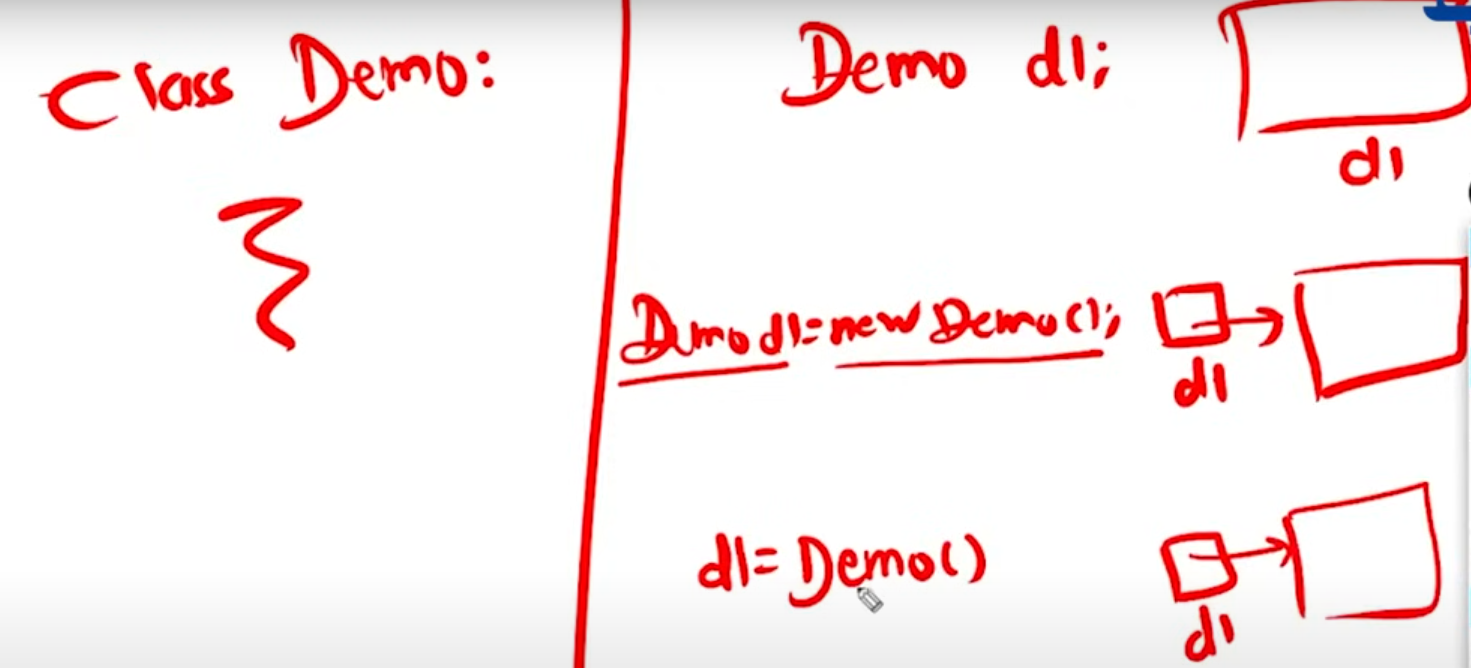 Class Demo:
Demo d1;
d1
Demo d1=new Demo();
d1
d1=Demo()
d1